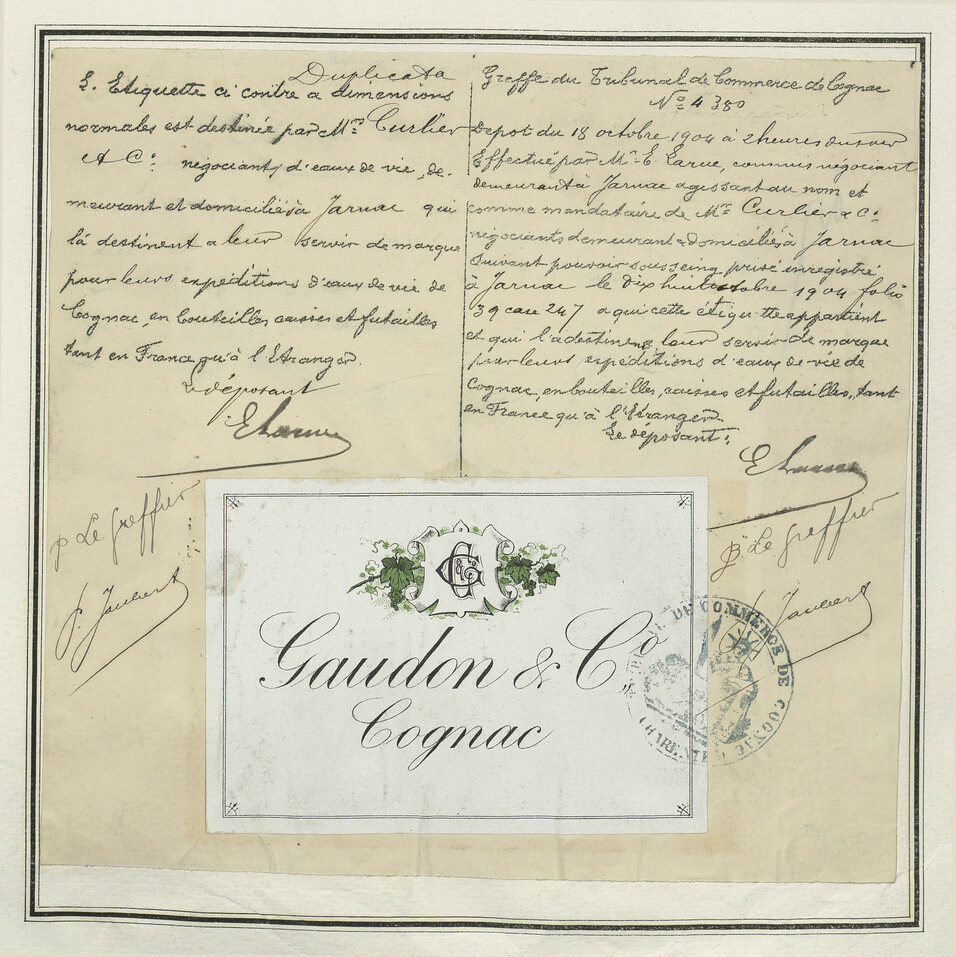 Duplicata
L. Etiquette ci contre a dimensions
normales est destinée par Mrs Curlier
& Co. négociants d'eaux de vie, de-
meurant et domiciliés à Jarnac qui
la destinent a leur servir de marque
pour leurs expéditions d'eaux de vie de
Cognac, en bouteilles caisses et futailles
tant en France qu'à l'Etranger.
Le déposant
E Larue
p Le Greffier
J. Jaubert
Greffe du Tribunal de Commerce de Cognac
No 4380
Depot du 18 octobre 1904 à 2 heures du soir
Effectué par Mr E. Larue, commis négociant
demeurant à Jarnac agissant au nom et
comme mandataire de Mrs Curlier & Co.
négociants demeurant & domiciliés à Jarnac
suivant pouvoir sous seing privé enregistré
à Jarnac le dix huit octobre 1904 folio
39 case 247 a qui cette étiquette appartient
et qui l'a destinent leur servir de marque
pour leurs expéditions d'eaux de vie de
Cognac, en bouteilles, caisses et futailles, tant
en France qu'à l'Etranger.
Le déposant:
E Larue
p Le Greffier
J. Jaubert
G & Co
Gaudon & Co
Cognac
TRIBUNAL DE COMMERCE DE COGNAC
CHARENTE